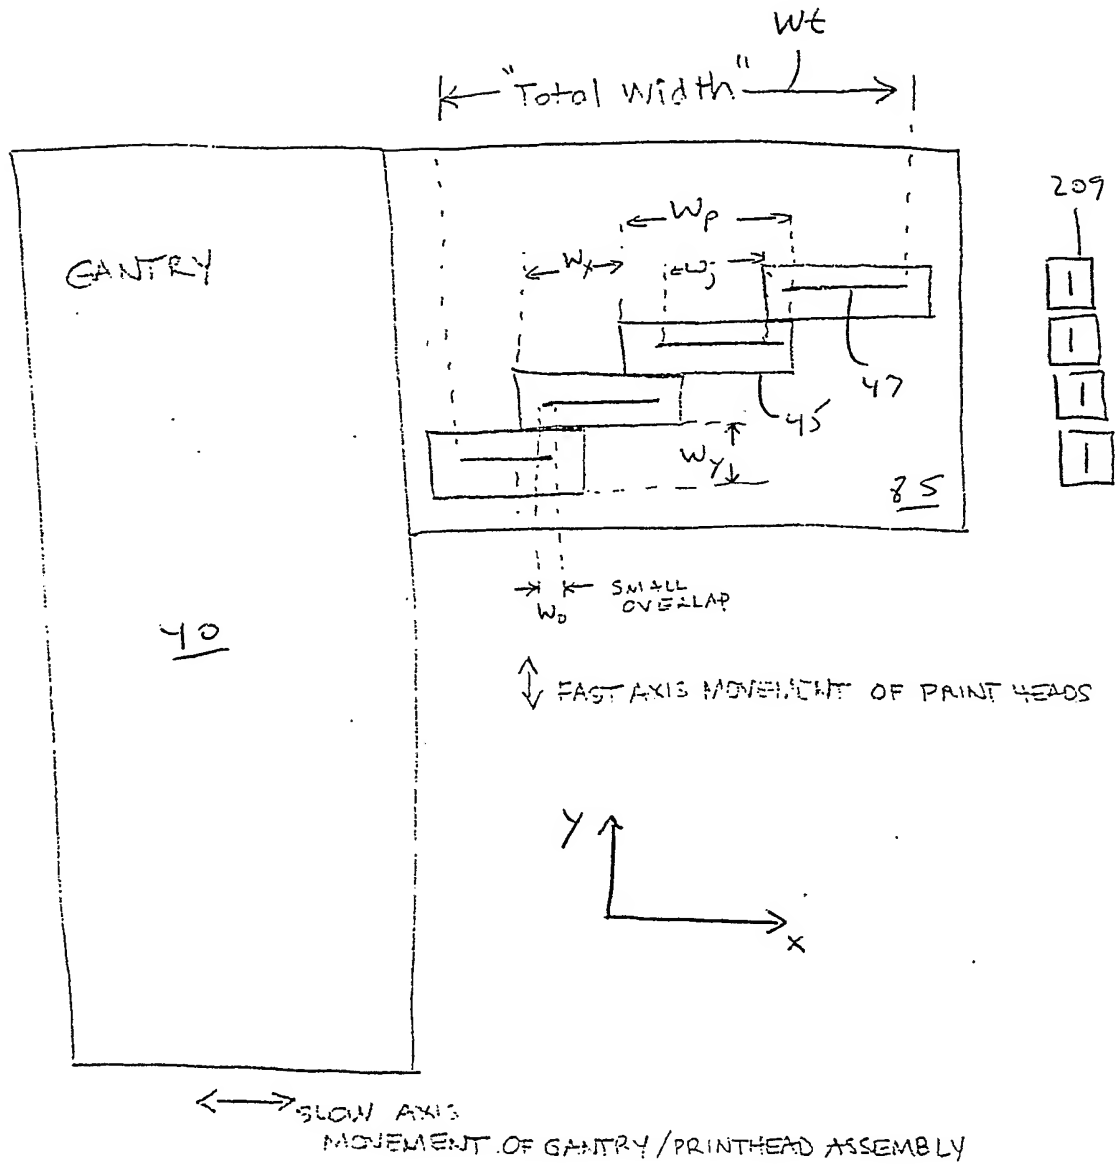 Wt
"Total Width"
209
GANTRY
Wp
Wx
Wj
47
45
Wy
85
Wo
SMALL
OVERLAP
40
FAST AXIS MOVEMENT OF PRINT HEADS
Y
X
SLOW AXIS
MOVEMENT OF GANTRY/PRINTHEAD ASSEMBLY